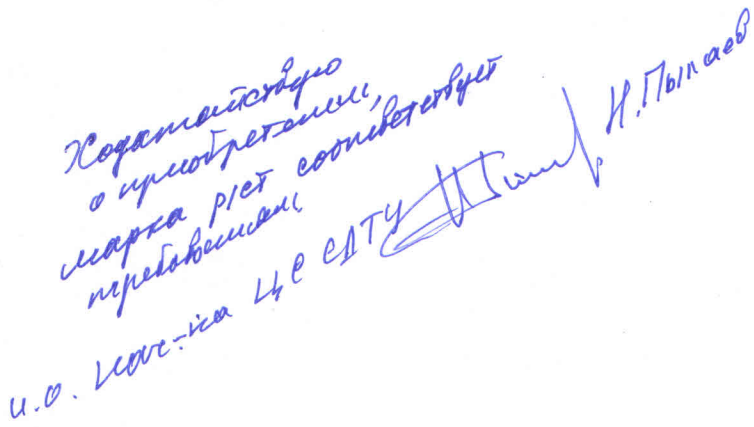 Ходатайствую
о приобретении,
марка р/ст соответствует
требованиям
и.о. нач-ка ЦС СДТУ Н.Пыпаев